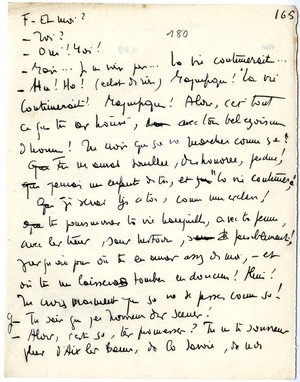 165
F - Et moi ?
180
- Toi ?
- Oui ! Moi !
- Mais... Je ne sais pas... La vie continuerait...
- Ha ! Ha ! (éclat de rire) Magnifique ! "La vie
continuerait ! Magnifique ! Alors, c'est tout
ce que tu as trouvé, avec ton bel égoïsme
d'homme ! Tu crois que ça va marcher comme ça ?
Tu m'aurais souillée, déshonorée, perdue,
un enfant de toi, et "la vie continuera"
Que je serai liée à toi, comme une esclave !
tu poursuivras ta vie tranquille, avec ta femme,
avec les tiens, sans histoires, paisiblement !
jusqu'au jour où tu en auras assez de moi, - et
où tu me laisseras tomber en douceur ! Hein !
Tu crois vraiment que ça va se passer comme ça !
G - Tu sais que j'ai horreur des scènes !
- Alors, c'est ça, tes promesses ? Tu ne te souviens
plus d'Aix les Bains, de la Savoie, de nos